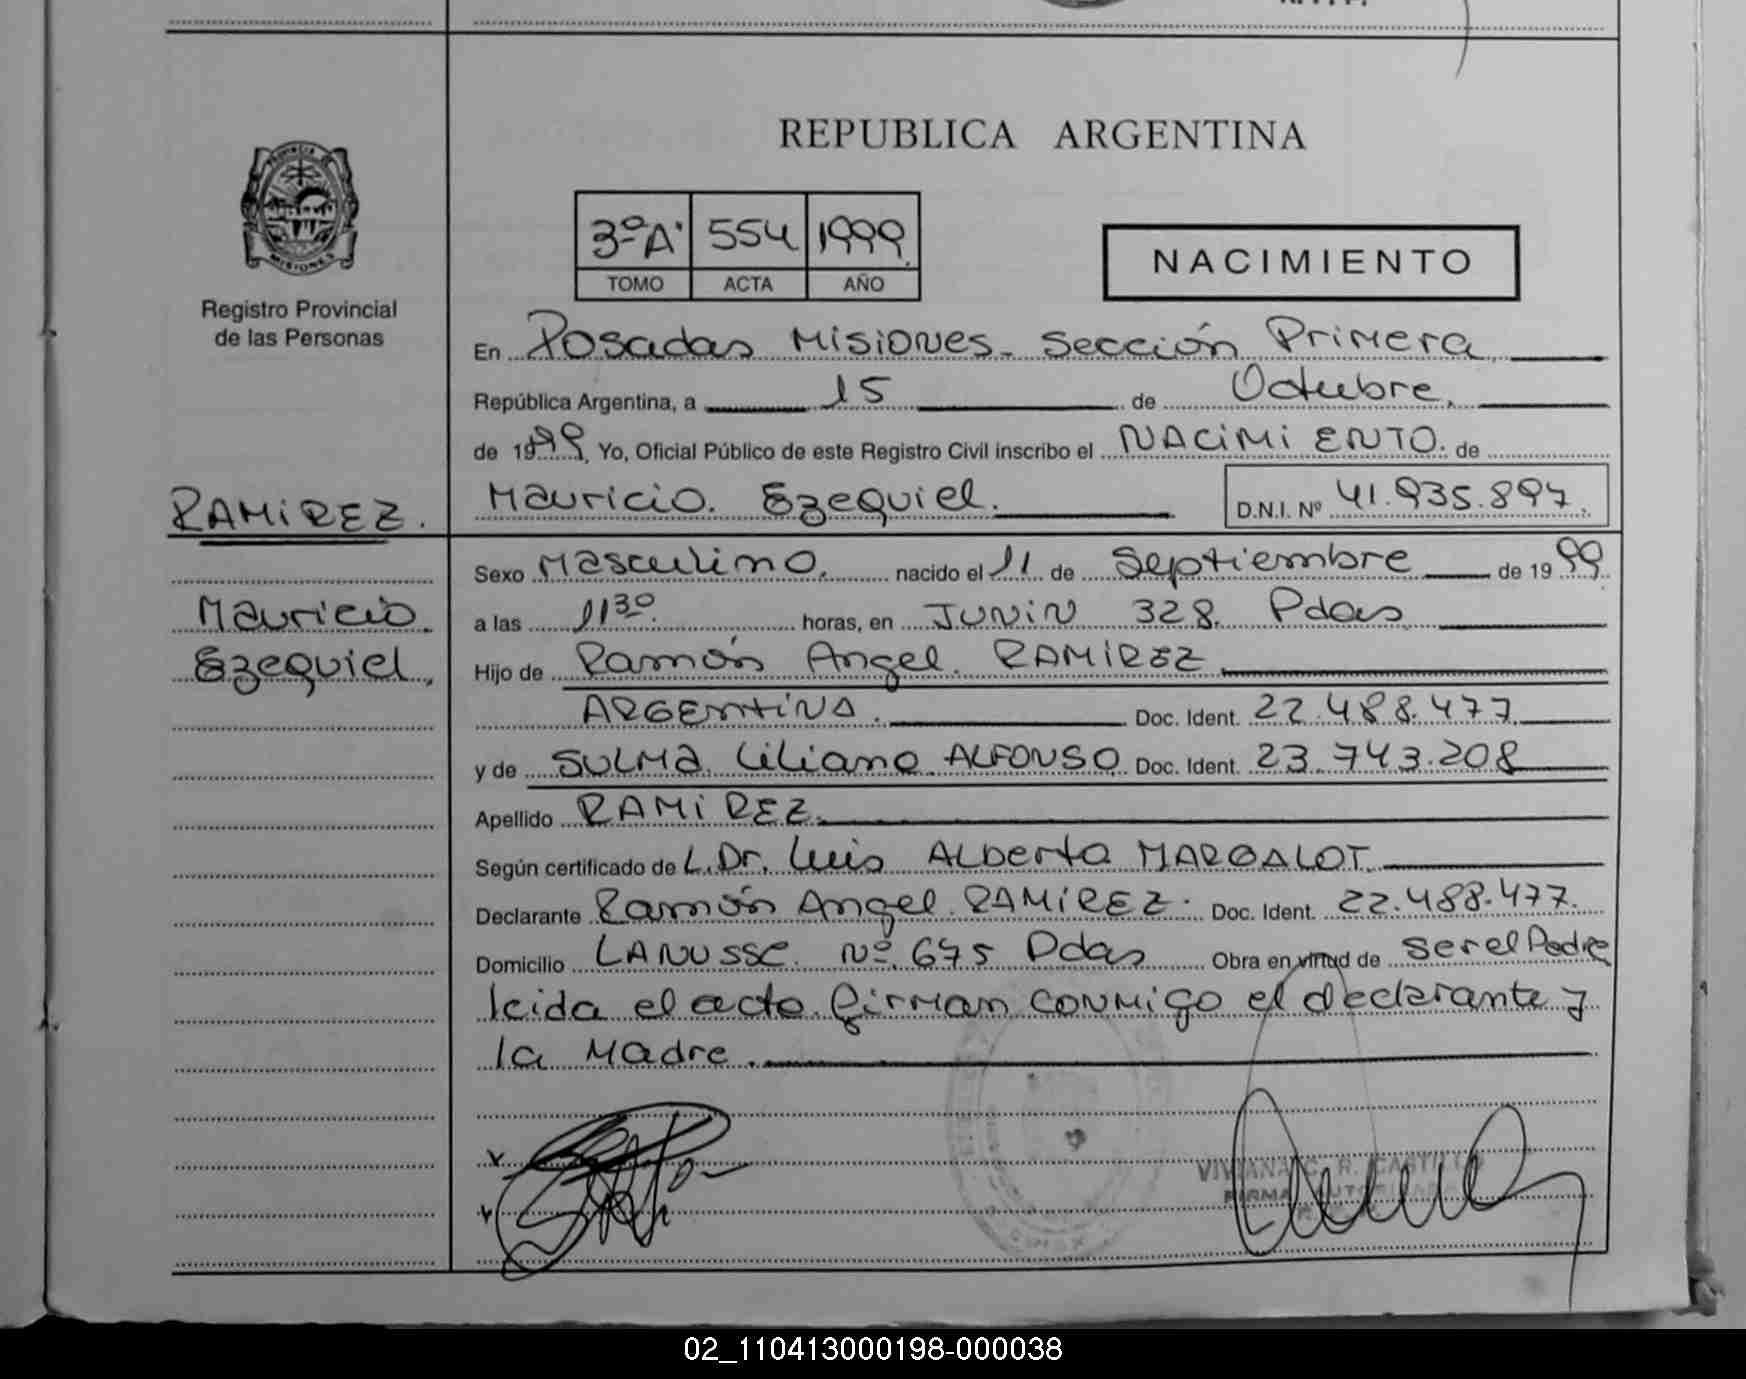 REPUBLICA ARGENTINA
PROVINCIA DE
MISIONES
Registro Provincial
de las Personas
3ºA' 554 1999.
TOMO ACTA AÑO
NACIMIENTO
En Posadas Misiones. Sección Primera
República Argentina, a 15 de Octubre,
de 1999, Yo, Oficial Público de este Registro Civil inscribo el NACIMIENTO. de
RAMIREZ.
Mauricio. Ezequiel. D.N.I. Nº 41.935.897.
Mauricio
Ezequiel,
Sexo Masculino. nacido el 11 de Septiembre de 1999
a las 11 30. horas, en JUNIN 328. Pdas
Hijo de Ramón Angel. RAMIREZ
ARGENTINA. Doc. Ident. 22.488.477
y de SULMA Liliana ALFONSO Doc. Ident. 23.743.208
Apellido RAMIREZ.
Según certificado de L.Dr. Luis Alberto MARGALOT
Declarante Ramón Angel. RAMIREZ. Doc. Ident. 22.488.477.
Domicilio LANUSSE. Nº 675 Pdas Obra en virtud de ser el Padre
leida el acta firman conmigo el declarante y
la Madre.
VIVIANA C. R. CASTILLO
FIRMA AUTORIZADA
02_110413000198-000038